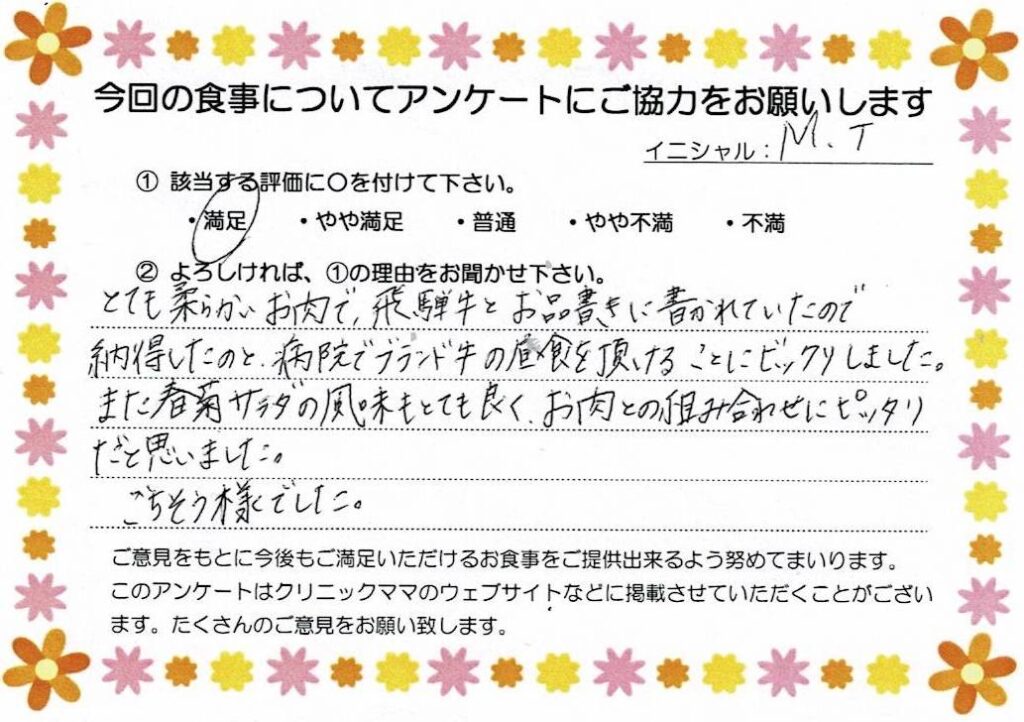 今回の食事についてアンケートにご協力をお願いします
イニシャル：M.T
① 該当する評価に〇を付けて下さい。
・満足 ・やや満足 ・普通 ・やや不満 ・不満
② よろしければ、①の理由をお聞かせ下さい。
とても柔らかいお肉で、飛騨牛とお品書きに書かれていたので
納得したのと、病院でブランド牛の昼食を頂けることにビックリしました。
また春菊サラダの風味もとても良く、お肉との組み合わせにピッタリ
だと思いました。
ごちそう様でした。
ご意見をもとに今後もご満足いただけるお食事をご提供出来るよう努めてまいります。
このアンケートはクリニックママのウェブサイトなどに掲載させていただくことがござい
ます。たくさんのご意見をお願い致します。